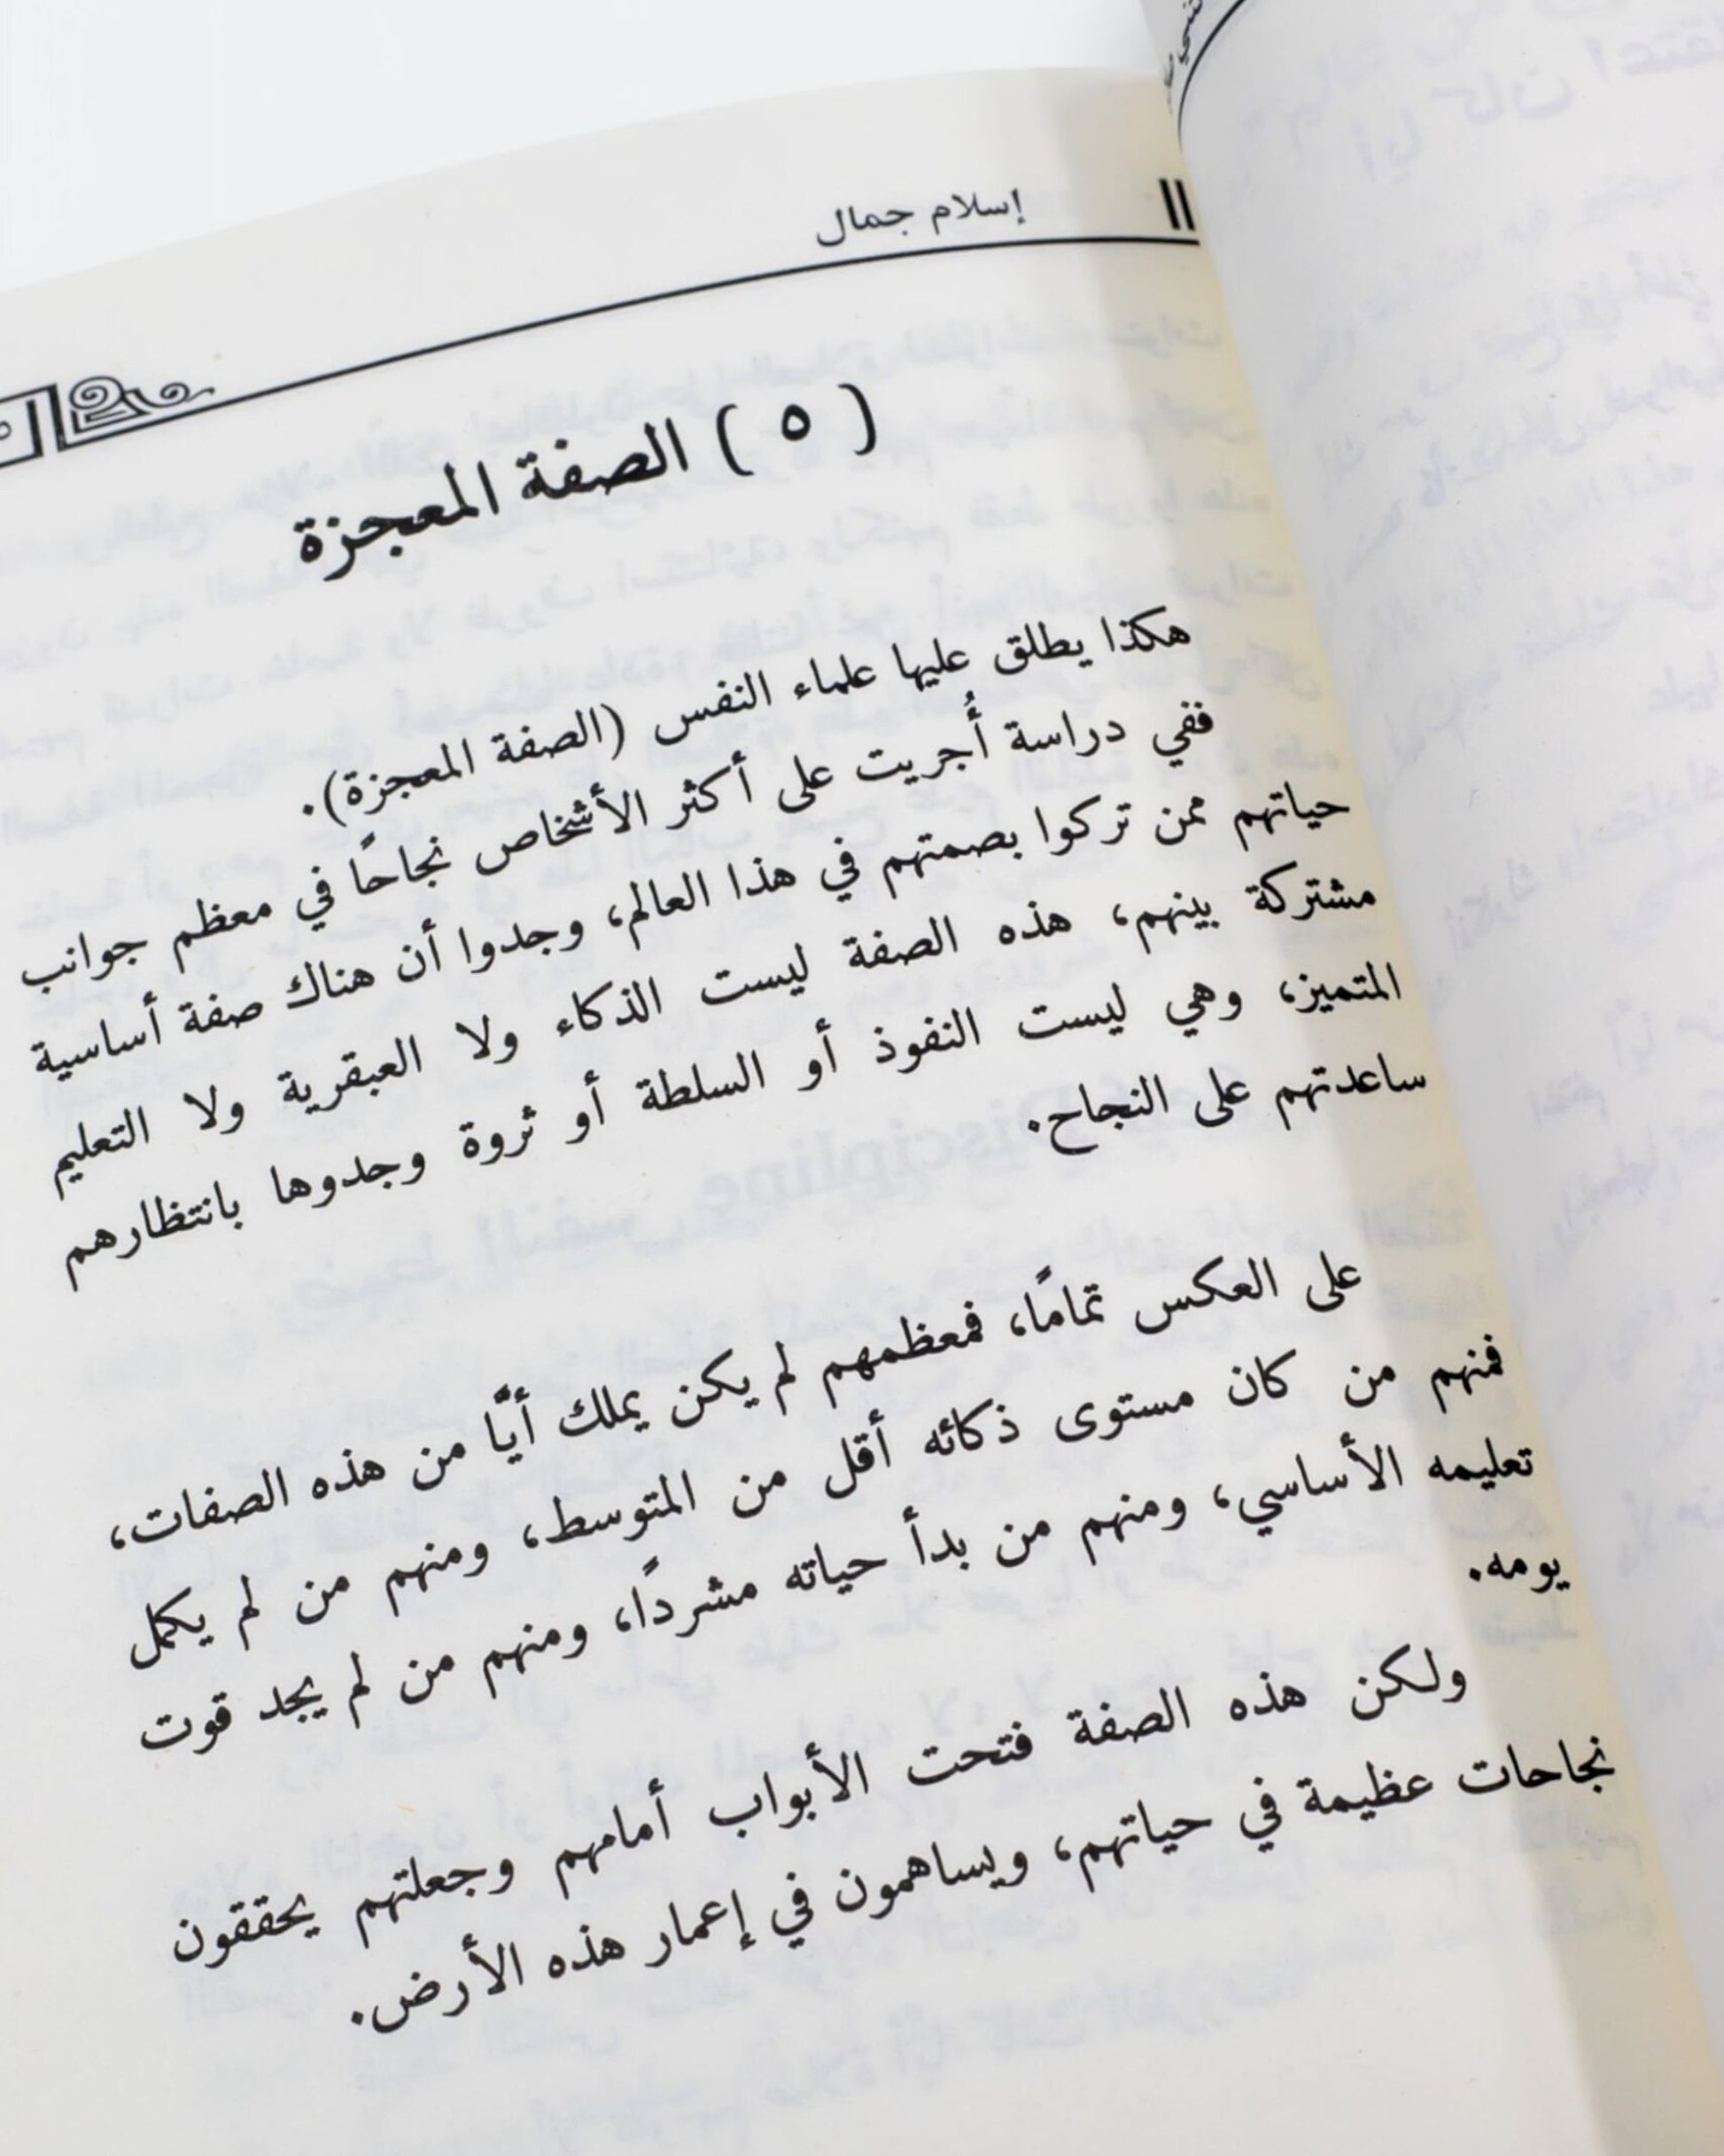 إسلام جمال
( ٥ ) الصفة المعجزة
هكذا يطلق عليها علماء النفس (الصفة المعجزة).
ففي دراسة أُجريت على أكثر الأشخاص نجاحًا في معظم جوانب
حياتهم ممن تركوا بصمتهم في هذا العالم، وجدوا أن هناك صفة أساسية
مشتركة بينهم، هذه الصفة ليست الذكاء ولا العبقرية ولا التعليم
المتميز، وهي ليست النفوذ أو السلطة أو ثروة وجدوها بانتظارهم
ساعدتهم على النجاح.
على العكس تمامًا، فمعظمهم لم يكن يملك أيًّا من هذه الصفات،
فمنهم من كان مستوى ذكائه أقل من المتوسط، ومنهم من لم يكمل
تعليمه الأساسي، ومنهم من بدأ حياته مشردًا، ومنهم من لم يجد قوت
يومه.
ولكن هذه الصفة فتحت الأبواب أمامهم وجعلتهم يحققون
نجاحات عظيمة في حياتهم، ويساهمون في إعمار هذه الأرض.